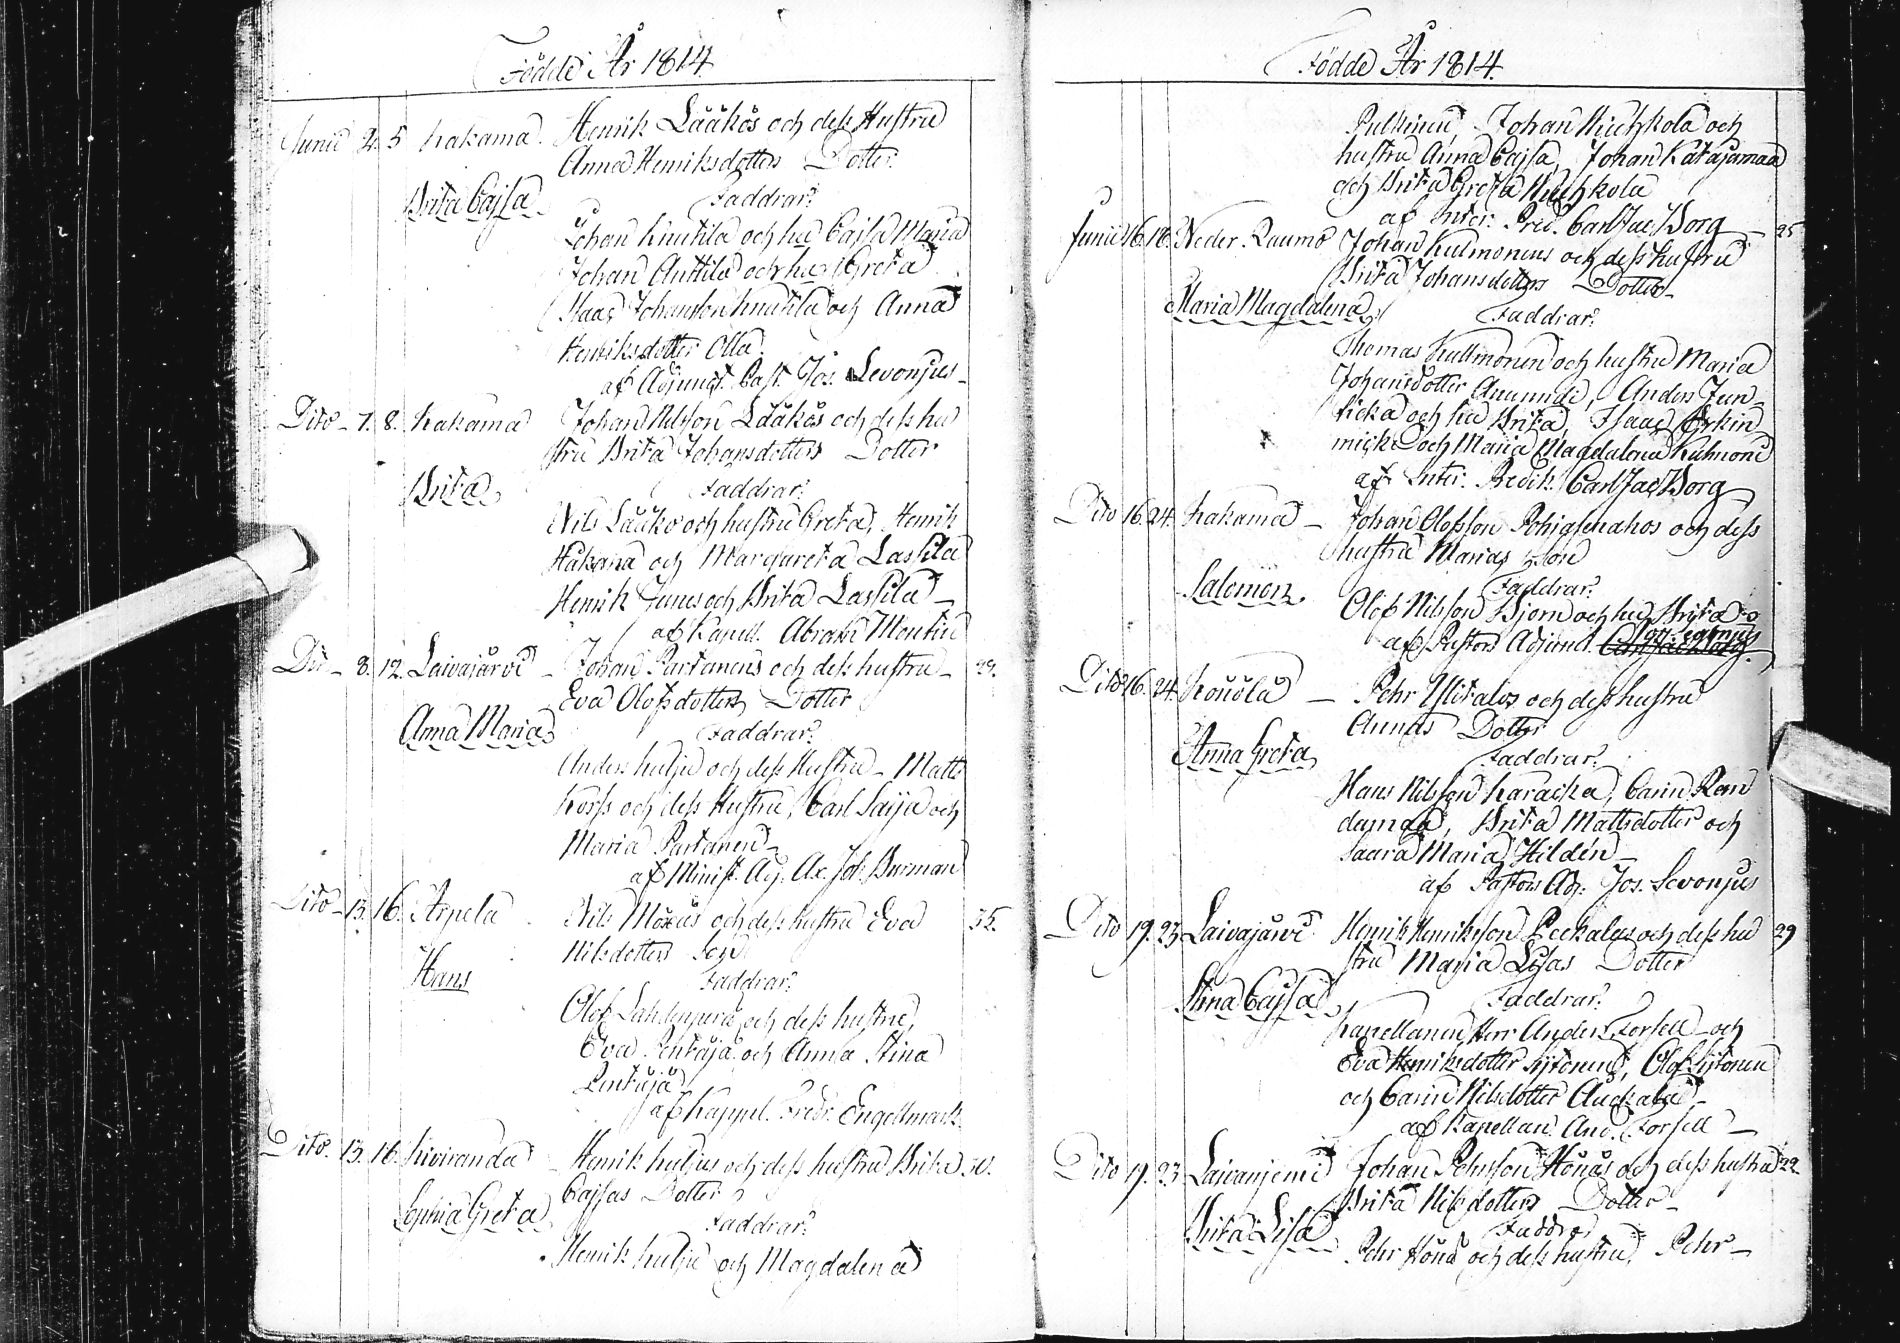 Födde År 1814.
Junii 2. 5 Kakama. Henrik Lääkös och dess Hustru
Anna Henriksdotters Dotter.
Brita Cajsa Faddrar:
Johan Knutila och hu Cajsa Maria
Johan Anttila och hu: Greta
Isaac Johansson Knutila och Anna
Henriksdotter Olla.
af Adjunct. Past. Jos. Levonjus
Dito 7. 8. Kakama Johan Nilsson Lääkös och dess hu
stru Brita Johansdotters Dotter
Brita Faddrar:
Nils Lääkö och hustru Greta, Henrik
Hakana och Margareta Lassila
Henrik Junes och Brita Lassila
af Kapell. Abrah: Montin
Dit 8. 12. Laivajärvi Johan Partanens och dess hustru
Eva Olofsdotters Dotter
Anna Maria Faddrar:
Anders Kulju och dess Hustru Matts
Korss och dess Hustru, Carl Saija och
Maria Partanen
af Minist. Adj. Ax. Joh. Burman
Dito 13. 16. Arpela Nils och dess hustru Eva 35.
Nilsdotters Son
Hans Faddrar:
Olof och dess hustru,
Eva Pentäjä och Anna Stina
Pentäjä
af Kappel. Fredr. Engelmark
Dito. 13. 16. Kiviranda Henrik Kuljus och dess hustru Brita
Cajsas Dotter
Sophia Greta Faddrar:
Henrik Kulju och Magdalena
Födde År 1814
Pulkinen, Johan och
hustru Anna Cajsa, Johan Katajamaa
och Brita Greta
af Inter: Pred. Carl Jac. Borg 25
Junii 16. 18. Neder Raumo Johan Kulmonens och dess hustru
Brita Johansdotters Dotter
Maria Magdalena Faddrar:
Thomas Kullmonen och hustru Maria
Johansdotter, Anders Jun
ticka och hu Brita, Isaac Erkin
micki och Maria Magdalena Kulmoni
af Inter: Predik. Carl Jac Borg
Dito 16. 24. Kakama Johan Olofsson och dess
hustru Marias Son
Salomon Faddrar:
Olof Nilsson Björn och hu Brita
af Pastors Adjunct.
Dito 16. 24. Pehr Ylitalos och dess hustru
Annas Dotter
Anna Greta Faddrar:
Hans Nilsson Karacka, Carin Ran
danda, Brita Mattsdotter och
Saara Maria Hildén
af Pastors Adj. Jos. Levonjus
Dito 19. 23 Laivajärvi Henrik Henriksson Peckalas och dess hu 29
stru Maria Lisas Dotter
Stina Cajsa Faddrar:
Kapellanen Herr Anders Forsell och
Eva Henriksdotter Lyttonen, Olof
och Carin Nilsdotter Auckala
af Kapellan. And. Forsell
Dito 19. 23. Laivaniemi Johan Pehrsson och dess hustru 22
Brita Nilsdotters Dotter
Brita Lisa Faddrar
Pehr och dess hustru, Pehr